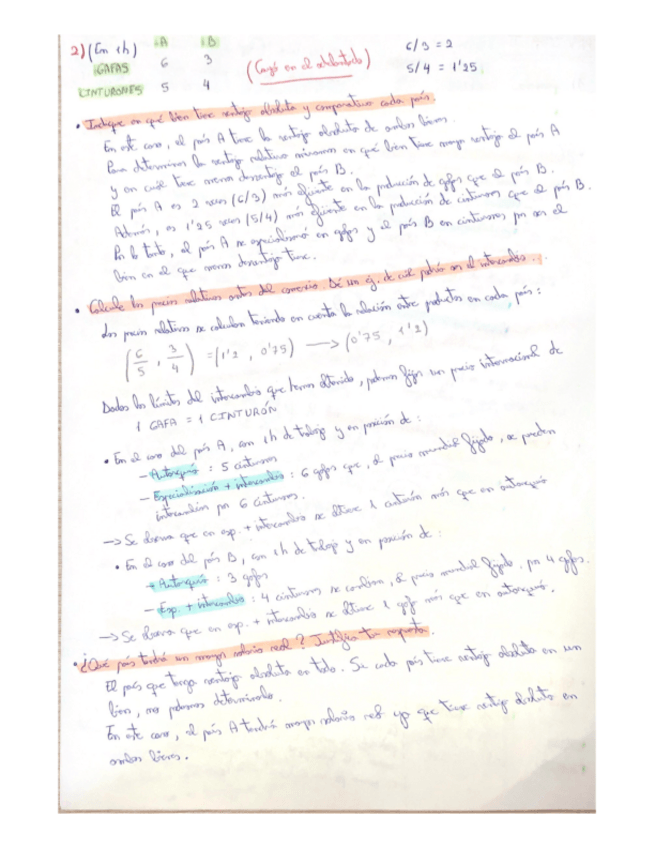 2) (En 1h) A B
GAFAS 6 3
CINTURONES 5 4
(Cayó en el adelantado)
6/3 = 2
5/4 = 1'25
• Indique en qué bien tiene ventaja absoluta y comparativa cada país.
En este caso, el país A tiene la ventaja absoluta de ambos bienes.
Para determinar la ventaja relativa miramos en qué bien tiene mayor ventaja el país A
y en cuál tiene menos desventaja el país B.
El país A es 2 veces (6/3) más eficiente en la producción de gafas que el país B.
Además, es 1'25 veces (5/4) más eficiente en la producción de cinturones que el país B.
Por lo tanto, el país A se especializará en gafas y el país B en cinturones por ser el
bien en el que menos desventaja tiene.
• Calcule los precios relativos antes del comercio. Dé un ej. de cuál podría ser el intercambio.
Los precios relativos se calculan teniendo en cuenta la relación entre productos en cada país:
(6/5 , 3/4) = (1'2 , 0'75) → (0'75 , 1'2)
Dados los límites del intercambio que hemos obtenido, podemos fijar un precio internacional de
1 GAFA = 1 CINTURÓN.
• En el caso del país A, con 1h de trabajo y en posición de:
- Autarquía: 5 cinturones
- Especialización + intercambio: 6 gafas que, al precio mundial fijado, se pueden
intercambiar por 6 cinturones.
→ Se observa que en esp. + intercambio se obtiene 1 cinturón más que en autarquía
• En el caso del país B, con 1h de trabajo y en posición de:
+ Autarquía: 3 gafas
- Esp. + intercambio: 4 cinturones se cambian, al precio mundial fijado, por 4 gafas.
→ Se observa que en esp. + intercambio se obtiene 1 gafa más que en autarquía.
• ¿Qué país tendrá un mayor salario real? Justifica tu respuesta.
El país que tenga ventaja absoluta en todo. Si cada país tiene ventaja absoluta en un
bien, no podemos determinarlo.
En este caso, el país A tendrá mayor salario real ya que tiene ventaja absoluta en
ambos bienes.